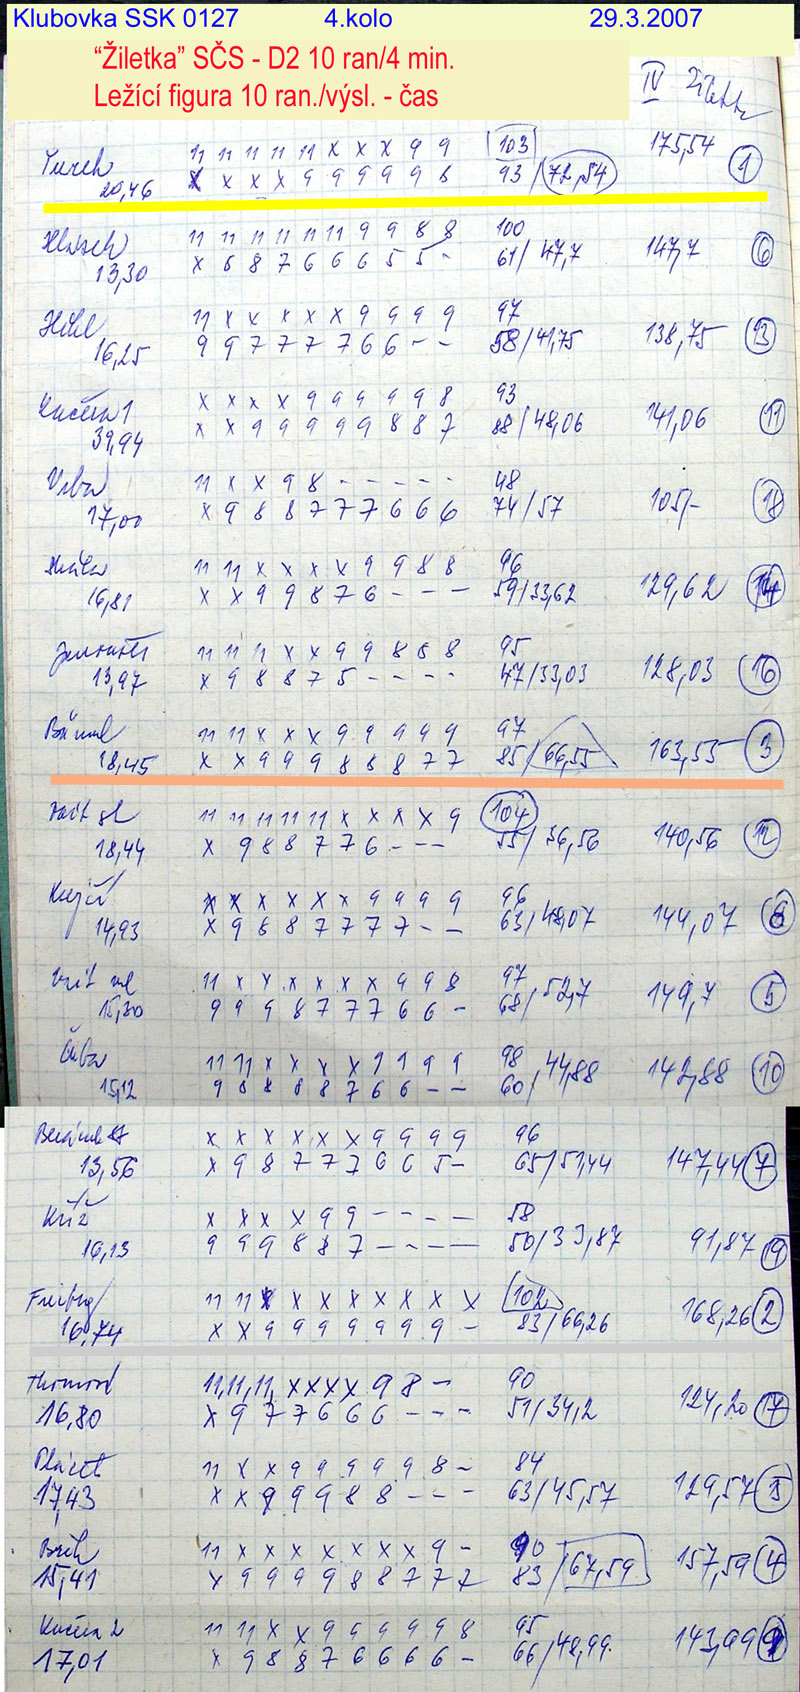 Klubovka SSK 0127 4.kolo 29.3.2007
“Žiletka” SČS - D2 10 ran/4 min.
Ležící figura 10 ran./výsl. - čas
IV
Turek 11 11 11 11 11 x x x 9 9 103 175,54
20,46 x x x x 9 9 9 9 9 8 93/72,54 1
11 11 11 11 11 11 9 9 8 8 100
13,30 x 8 8 7 6 6 6 5 5 - 61/47,7 147,7 6
11 x x x x x 9 9 9 9 97
16,25 9 9 7 7 7 7 6 6 - - 58/41,75 138,75 13
Kučera 1 x x x x 9 9 9 9 9 8 93
39,94 x x 9 9 9 9 9 8 8 7 88/48,06 141,06 11
Vrba 11 x x 9 8 - - - - - 48
17,00 x 9 8 8 7 7 7 6 6 6 74/57 105,- 18
11 11 x x x x 9 9 8 8 96
16,81 x x 9 9 8 7 6 - - - 59/33,62 129,62 14
11 11 11 x x 9 9 8 8 8 95
13,97 x 9 8 8 7 5 - - - - 47/33,03 128,03 16
11 11 x x x 9 9 9 9 9 97
18,45 x x 9 9 9 8 8 8 7 7 85/66,55 163,55 3
11 11 11 11 11 x x x x 9 104
18,44 x 9 8 8 7 7 6 - - - 55/36,56 140,56 12
x x x x x x 9 9 9 9 96
14,93 x 9 8 8 7 7 7 7 - - 63/48,07 144,07 8
11 x x x x x x 9 9 8 97
15,30 9 9 9 8 7 7 7 6 6 - 68/52,7 149,7 5
11 11 x x x x 9 9 9 9 98
15,12 9 8 8 8 8 7 6 6 - - 60/44,88 142,88 10
x x x x x x 9 9 9 9 96
13,56 x 9 8 7 7 7 6 6 5 - 65/51,44 147,44 7
Kříž x x x x 9 9 - - - - 58
16,13 9 9 9 8 8 7 - - - - 50/33,87 91,87 19
11 11 x x x x x x x x 102
16,74 x x 9 9 9 9 9 9 9 - 83/66,26 168,26 2
11,11,11, x x x x 9 8 - 90
16,80 x 9 7 7 6 6 6 - - - 51/34,2 124,20 17
11 x x 9 9 9 9 9 8 - 84
17,43 x x 9 9 9 8 8 - - - 63/45,57 129,57 15
11 x x x x x x x 9 - 90
15,41 x 9 9 9 9 8 8 7 7 7 83/67,59 157,59 4
Kučera 2 11 11 x x 9 9 9 9 9 8 95
17,01 x 9 8 8 7 6 6 6 6 - 66/48,99 143,99 9